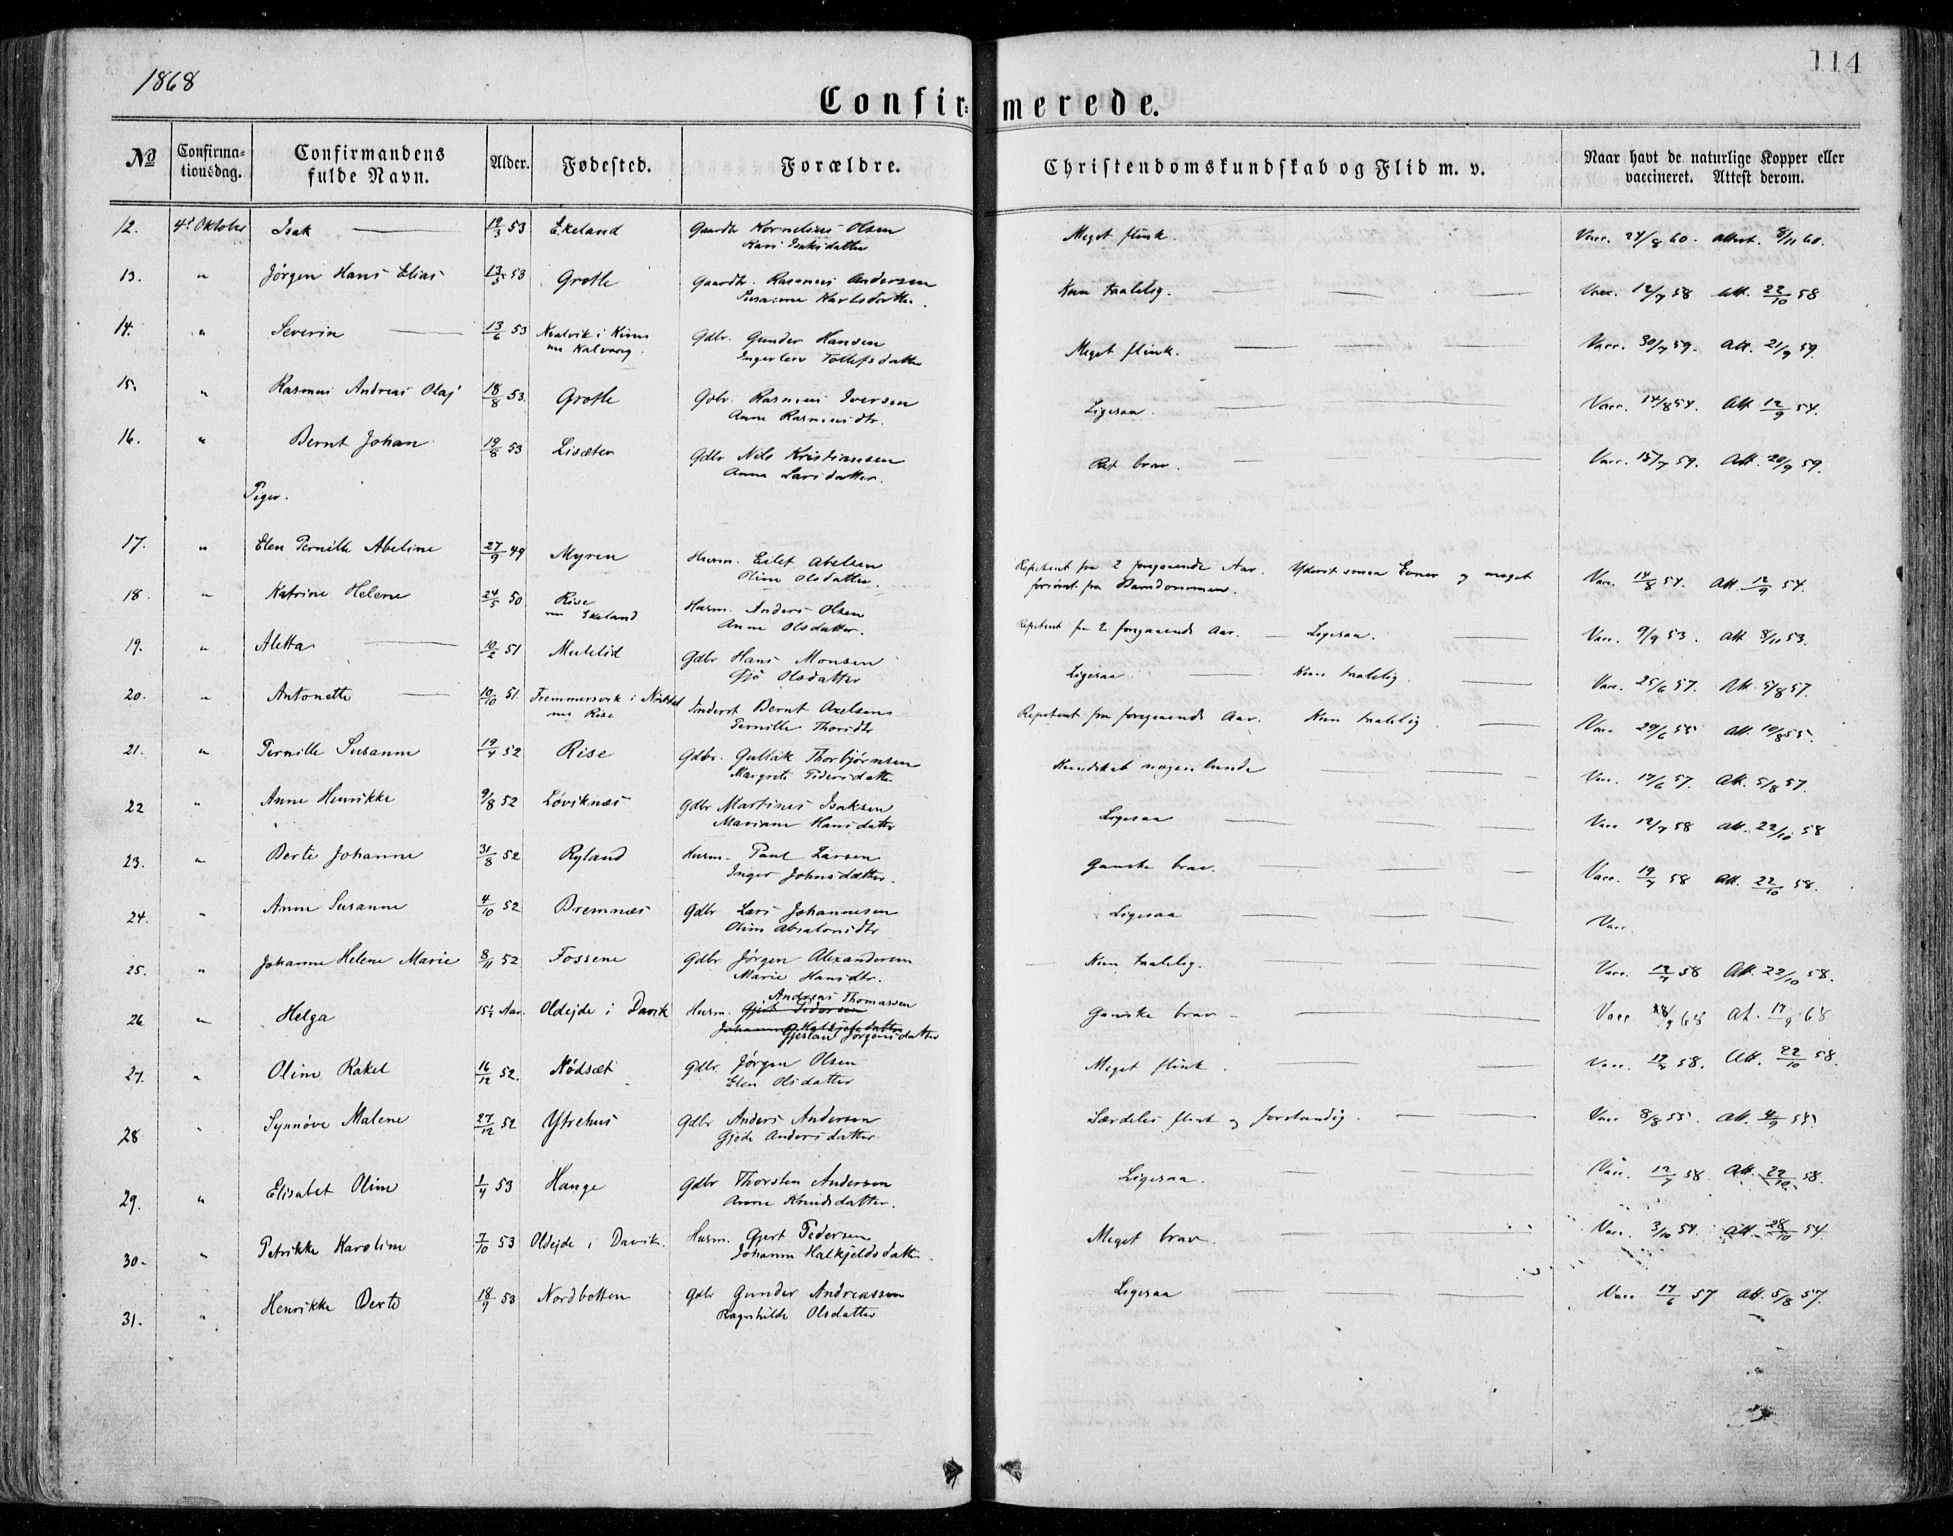 1868
114
Confir= merede.
No Confirma=tionsdag. Confirmandens fulde Navn. Alder. Fødested. Forældre. Christendomskundskab og Flid m. v. Naar havt de naturlige Kopper eller vaccineret. Attest derom.
12. 4de Oktober Isak — 19/3 53 Ekeland Gaardbr Kornelius Olsen Kari Isaksdatter Meget flink. Vacc. 24/8 60. Attest. 8/11 60.
13. " Jørgen Hans Elias 13/5 53 Grotle Gaardbr. Rasmus Andersen Susanne Karlsdatter. Kun taalelig. — Vacc. 12/7 58 Att. 22/10 58
14. " Severin — 13/6 53 i Kinn nu Kalvaag. Gdbr. Gunder Hansen Ingerlew Tollefsdatter Meget flink. — Vacc. 30/7 59. Att. 21/9 59.
15. " Rasmus Andreas Olaj 18/8 53. Grotle Gdbr. Rasmus Iversen Anne Rasmusdtr. Ligesaa. — Vacc. 14/8 54. Att. 12/9 54.
16. " Bernt Johan 19/8 53 Lisæter Gdbr Nils Kristiansen Anna Larsdatter. Ret brav. — Vacc. 15/7 59. Att. 20/9 59.
Piger.
17. " Elen Pernille Abeline 27/9 49 Myren Husm. Eilet Abelsen Oline Olsdatter. Repetent fra 2 foregaaende Aar. Yderst smaa Evner og meget forsømt fra Barndommen. Vacc. 14/8 54. Att. 12/9 54.
18. " Katrine Helene 24/5 50 Rise nu Ekeland Husm. Anders Olsen Anne Olsdatter. Repetent fra 2 foregaaende Aar. — Ligesaa. — Vacc. 9/9 53. Att. 8/11 53.
19. " Aletta — 10/2 51 Mulelid Gdbr Hans Monsen Gjø Olsdatter Ligesaa. — Kun taalelig. — Vacc. 25/6 57. Att. 5/8 57.
20. " Antonette — 10/10 51. Fremmersvik i nu Rise Inderst Bernt Axelsen Pernille Thorsdtr Repetent fra foregaaende Aar. Kun taalelig — Vacc. 29/6 55 Att. 10/8 55.
21. " Pernille Susanne 19/4 52 Rise Gdbr. Gullak Thorbjørnsen Margrete Pedersdatter Kundskab nogenlunde — Vacc. 17/6 57. Att. 5/8 57.
22 " Anne Henrikke 9/8 52 Løviknæs Gdbr Martinus Isaksen Mariane Hansdatter Ligesaa — Vacc 12/7 58 Att. 22/10 58
23. " Berte Johanne 31/8 52 Ryland Husm. Paul Larsen Inger Johnsdatter. Ganske brav. — Vacc. 19/7 58 Att. 22/10 58.
24. " Anne Susanne 4/10 52 Bremnæs Gdbr Lars Johannesen Oline Absalonsdtr Ligesaa — Vacc.
25. " Johanne Helene Marie 8/11 52 Fossene Gdbr Jørgen Alexandersen Marie Hansdtr. Kun taalelig. — Vacc. 12/7 58 Att. 22/10 58.
26 " Helga 15½ Aar. Oldejde i Davik Husm. Andreas Thomassen Gjert Pedersen Johanne Halkjelsdatter Gjeslau Jørgensdatter Ganske brav — Vacc 8/9 68 At. 17/9 68
27. " Oline Rakel 16/12 52. Nødsæt Gdbr. Jørgen Olsen Elen Olsdatter Meget flink. — Vacc. 12/7 58. Att. 22/10 58.
28 " Synnøve Malene 27/12 52 Ytrehus Gdbr Anders Andersen Gjøde Andersdatter Særdeles flink og forstandig. — Vacc 8/8 55. Att. 4/9 55.
29. " Elisabet Oline 1/4 53 Hauge Gdbr Thorsten Andersen Anne Knudsdatter. Ligesaa. — Vacc. 12/7 58. Att. 22/10 58.
30. " Petrikke Karoline 7/10 53 Oldejde i Davik. Husm. Gjert Pedersen Johanne Halkjeldsdatter. Meget brav. — Vacc. 3/10 54. Att. 28/10 54
31. " Henrikke Berte 18/9 53 Nordbotten Gdbr Gunder Andreassen Ragnhilde Olsdatter Ligesaa — Vacc 17/6 57 Att. 5/8 57.